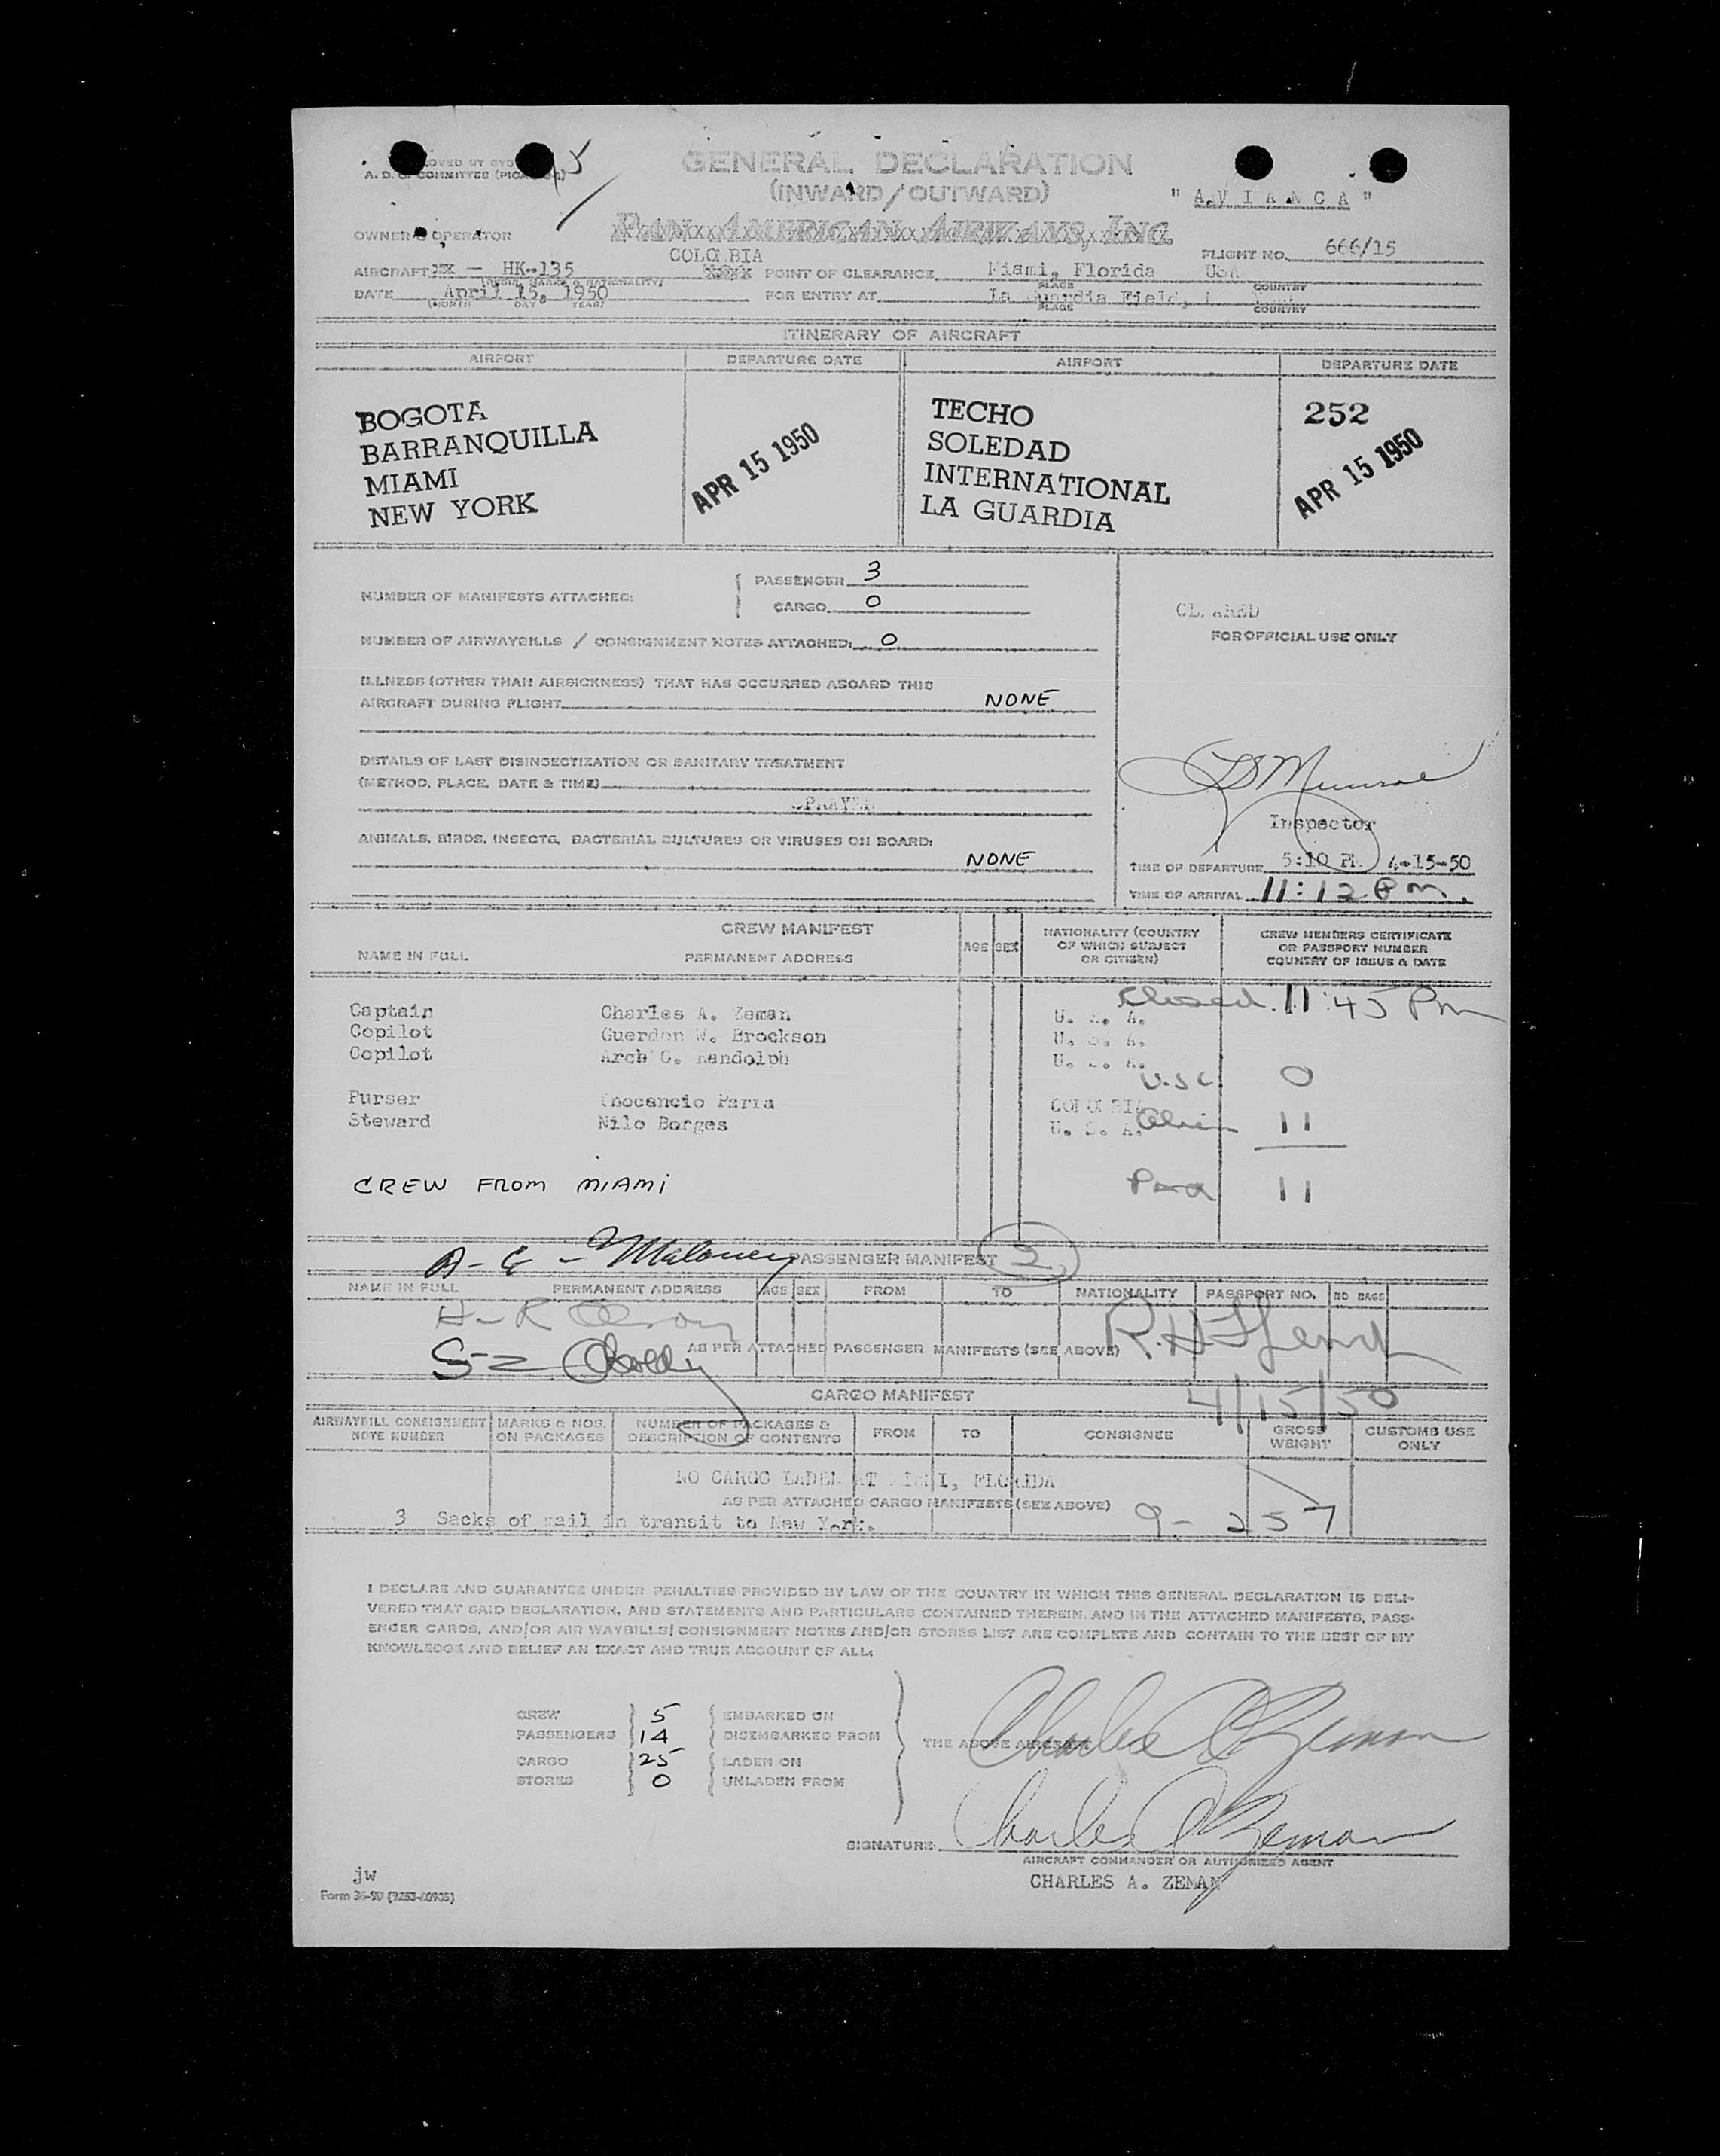 GENERAL DECLARATION
(INWARD/OUTWARD)
" AVIANCA "
A. D. OF COMMITTEE
OWNER & OPERATOR
PAN AMERICAN AIRWAYS, INC.
FLIGHT NO. 666/15
COLOMBIA
AIRCRAFT HK-135 POINT OF CLEARANCE Miami, Florida USA
(REGIS. MARKS & NATIONALITY) PLACE COUNTRY
DATE April 15, 1950 FOR ENTRY AT La Guardia Field,
(MONTH DAY YEAR) PLACE COUNTRY
ITINERARY OF AIRCRAFT
AIRPORT DEPARTURE DATE AIRPORT DEPARTURE DATE
BOGOTA TECHO 252
BARRANQUILLA APR 15 1950 SOLEDAD APR 15 1950
MIAMI INTERNATIONAL
NEW YORK LA GUARDIA
NUMBER OF MANIFESTS ATTACHED: PASSENGER 3
CARGO 0
CLEARED
FOR OFFICIAL USE ONLY
NUMBER OF AIRWAYBILLS / CONSIGNMENT NOTES ATTACHED: 0
ILLNESS (OTHER THAN AIRSICKNESS) THAT HAS OCCURRED ABOARD THIS
AIRCRAFT DURING FLIGHT NONE
DETAILS OF LAST DISINSECTIZATION OR SANITARY TREATMENT
(METHOD, PLACE, DATE & TIME)
SPRAYED
Munroe
Inspector
ANIMALS, BIRDS, INSECTS, BACTERIAL CULTURES OR VIRUSES ON BOARD:
NONE
TIME OF DEPARTURE 5:10 PM 4-15-50
TIME OF ARRIVAL 11:12 Pm.
CREW MANIFEST
NAME IN FULL PERMANENT ADDRESS AGE SEX NATIONALITY (COUNTRY OF WHICH SUBJECT OR CITIZEN) CREW MEMBERS CERTIFICATE OR PASSPORT NUMBER COUNTRY OF ISSUE & DATE
Closed 11:45 Pm
Captain Charles A. Zeman U. S. A.
Copilot Guerdon W. Brockson U. S. A.
Copilot Arch C. Randolph U. S. A.
U.S.C. 0
Purser Inocencio Parra COLOMBIA
Steward Nilo Borges U. S. A. Alien 11
CREW FROM MIAMI 11
A-E-Maloney PASSENGER MANIFEST 2
NAME IN FULL PERMANENT ADDRESS AGE SEX FROM TO NATIONALITY PASSPORT NO. NO BAGS
H-R
AS PER ATTACHED PASSENGER MANIFESTS (SEE ABOVE)
CARGO MANIFEST 4/15/50
AIRWAYBILL CONSIGNMENT NOTE NUMBER MARKS & NOS. ON PACKAGES NUMBER OF PACKAGES & DESCRIPTION OF CONTENTS FROM TO CONSIGNEE GROSS WEIGHT CUSTOMS USE ONLY
NO CARGO LADEN AT MIAMI, FLORIDA
AS PER ATTACHED CARGO MANIFESTS (SEE ABOVE)
3 Sacks of mail in transit to New York. 9- 257
I DECLARE AND GUARANTEE UNDER PENALTIES PROVIDED BY LAW OF THE COUNTRY IN WHICH THIS GENERAL DECLARATION IS DELI-
VERED THAT SAID DECLARATION, AND STATEMENTS AND PARTICULARS CONTAINED THEREIN, AND IN THE ATTACHED MANIFESTS, PASS-
ENGER CARDS, AND/OR AIR WAYBILLS/CONSIGNMENT NOTES AND/OR STORES LIST ARE COMPLETE AND CONTAIN TO THE BEST OF MY
KNOWLEDGE AND BELIEF AN EXACT AND TRUE ACCOUNT OF ALL:
CREW 5 EMBARKED ON
PASSENGERS 14 DISEMBARKED FROM
THE ABOVE AIRCRAFT
Charles A Zeman
CARGO 25 LADEN ON
STORES 0 UNLADEN FROM
SIGNATURE Charles A Zeman
AIRCRAFT COMMANDER OR AUTHORIZED AGENT
CHARLES A. ZEMAN
jw
Form 36-90